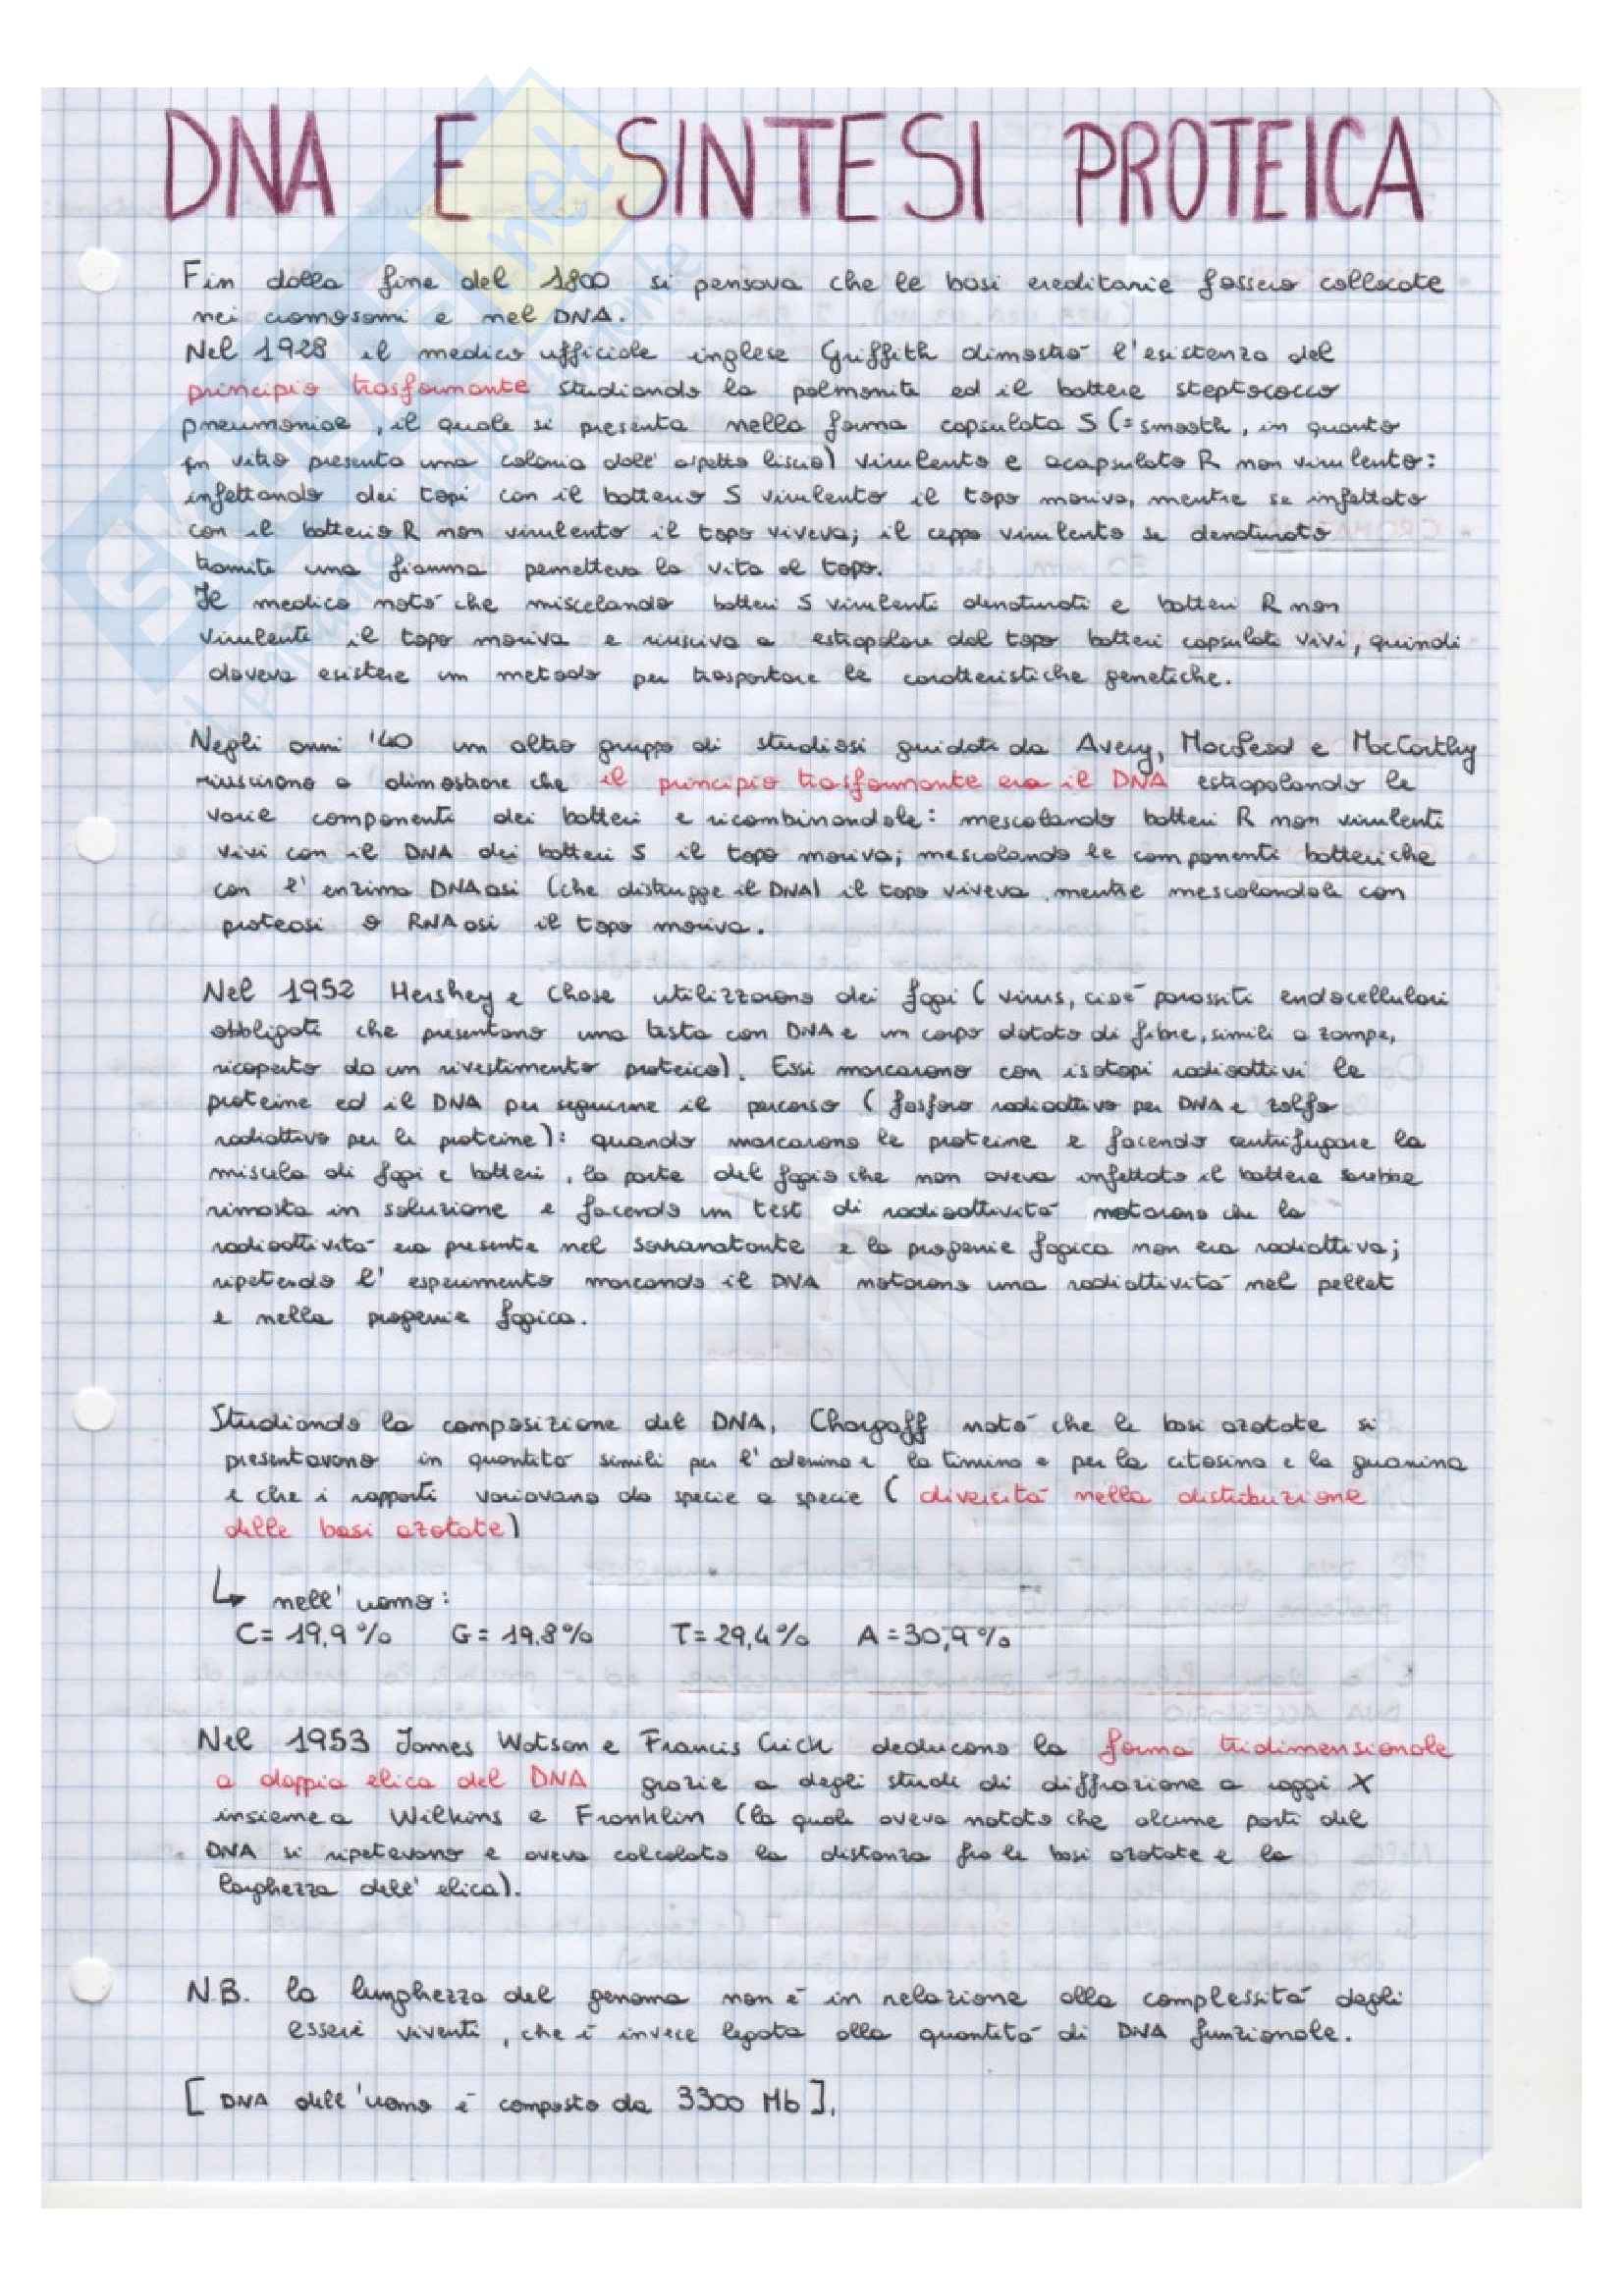 DNA E SINTESI PROTEICA
Fin dalla fine del 1800 si pensava che le basi ereditarie fossero collocate
nei cromosomi e nel DNA.
Nel 1928 il medico ufficiale inglese Griffith dimostrò l'esistenza del
principio trasformante studiando la polmonite ed il battere steptococco
pneumoniae, il quale si presenta nella forma capsulata S (=smooth, in quanto
in vitro presenta una colonia dall'aspetto liscio) virulento e acapsulato R non virulento:
infettando dei topi con il batterio S virulento il topo moriva, mentre se infettato
con il batterio R non virulento il topo viveva; il ceppo virulento se denaturato
tramite una fiamma permetteva la vita al topo.
Il medico notò che miscelando batteri S virulenti denaturati e batteri R non
virulenti il topo moriva e riusciva a estrapolare dal topo batteri capsulati vivi, quindi
doveva esistere un metodo per trasportare le caratteristiche genetiche.
Negli anni '40 un altro gruppo di studiosi guidati da Avery, MacLeod e MacCarthy
riuscirono a dimostrare che il principio trasformante era il DNA estrapolando le
varie componenti dei batteri e ricombinandole: mescolando batteri R non virulenti
vivi con il DNA dei batteri S il topo moriva; mescolando le componenti batteriche
con l'enzima DNAasi (che distrugge il DNA) il topo viveva, mentre mescolandole con
proteasi o RNAasi il topo moriva.
Nel 1952 Hershey e Chase utilizzarono dei fagi (virus, cioè parassiti endocellulari
obbligati che presentano una testa con DNA e un corpo dotato di fibre, simili a zampe,
ricoperto da un rivestimento proteico). Essi marcarono con isotopi radioattivi le
proteine ed il DNA per seguirne il percorso (fosforo radioattivo per DNA e zolfo
radiattivo per le proteine): quando marcarono le proteine e facendo centrifugare la
miscela di fagi e batteri, la parte del fagio che non aveva infettato il battere sarebbe
rimasta in soluzione e facendo un test di radioattività notarono che la
radioattività era presente nel sovranatante e la progenie fagica non era radiattiva;
ripetendo l'esperimento marcando il DNA notarono una radiattività nel pellet
e nella progenie fagica.
Studiando la composizione del DNA, Chargaff notò che le basi azotate si
presentavano in quantità simili per l'adenina e la timina e per la citosina e la guanina
e che i rapporti variavano da specie a specie (diversità nella distribuzione
delle basi azotate)
↳ nell'uomo:
C= 19,9% G= 19.8% T= 29,4% A=30,9%
Nel 1953 James Watson e Francis Crick deducono la forma tridimensionale
a doppia elica del DNA grazie a degli studi di diffrazione a raggi X
insieme a Wilkins e Franklin (la quale aveva notato che alcune parti del
DNA si ripetevano e aveva calcolato la distanza fra le basi azotate e la
larghezza dell'elica).
N.B. la lunghezza del genoma non è in relazione alla complessità degli
esseri viventi, che è invece legata alla quantità di DNA funzionale.
[DNA dell'uomo è composto da 3300 Mb].
SKUOLA.net